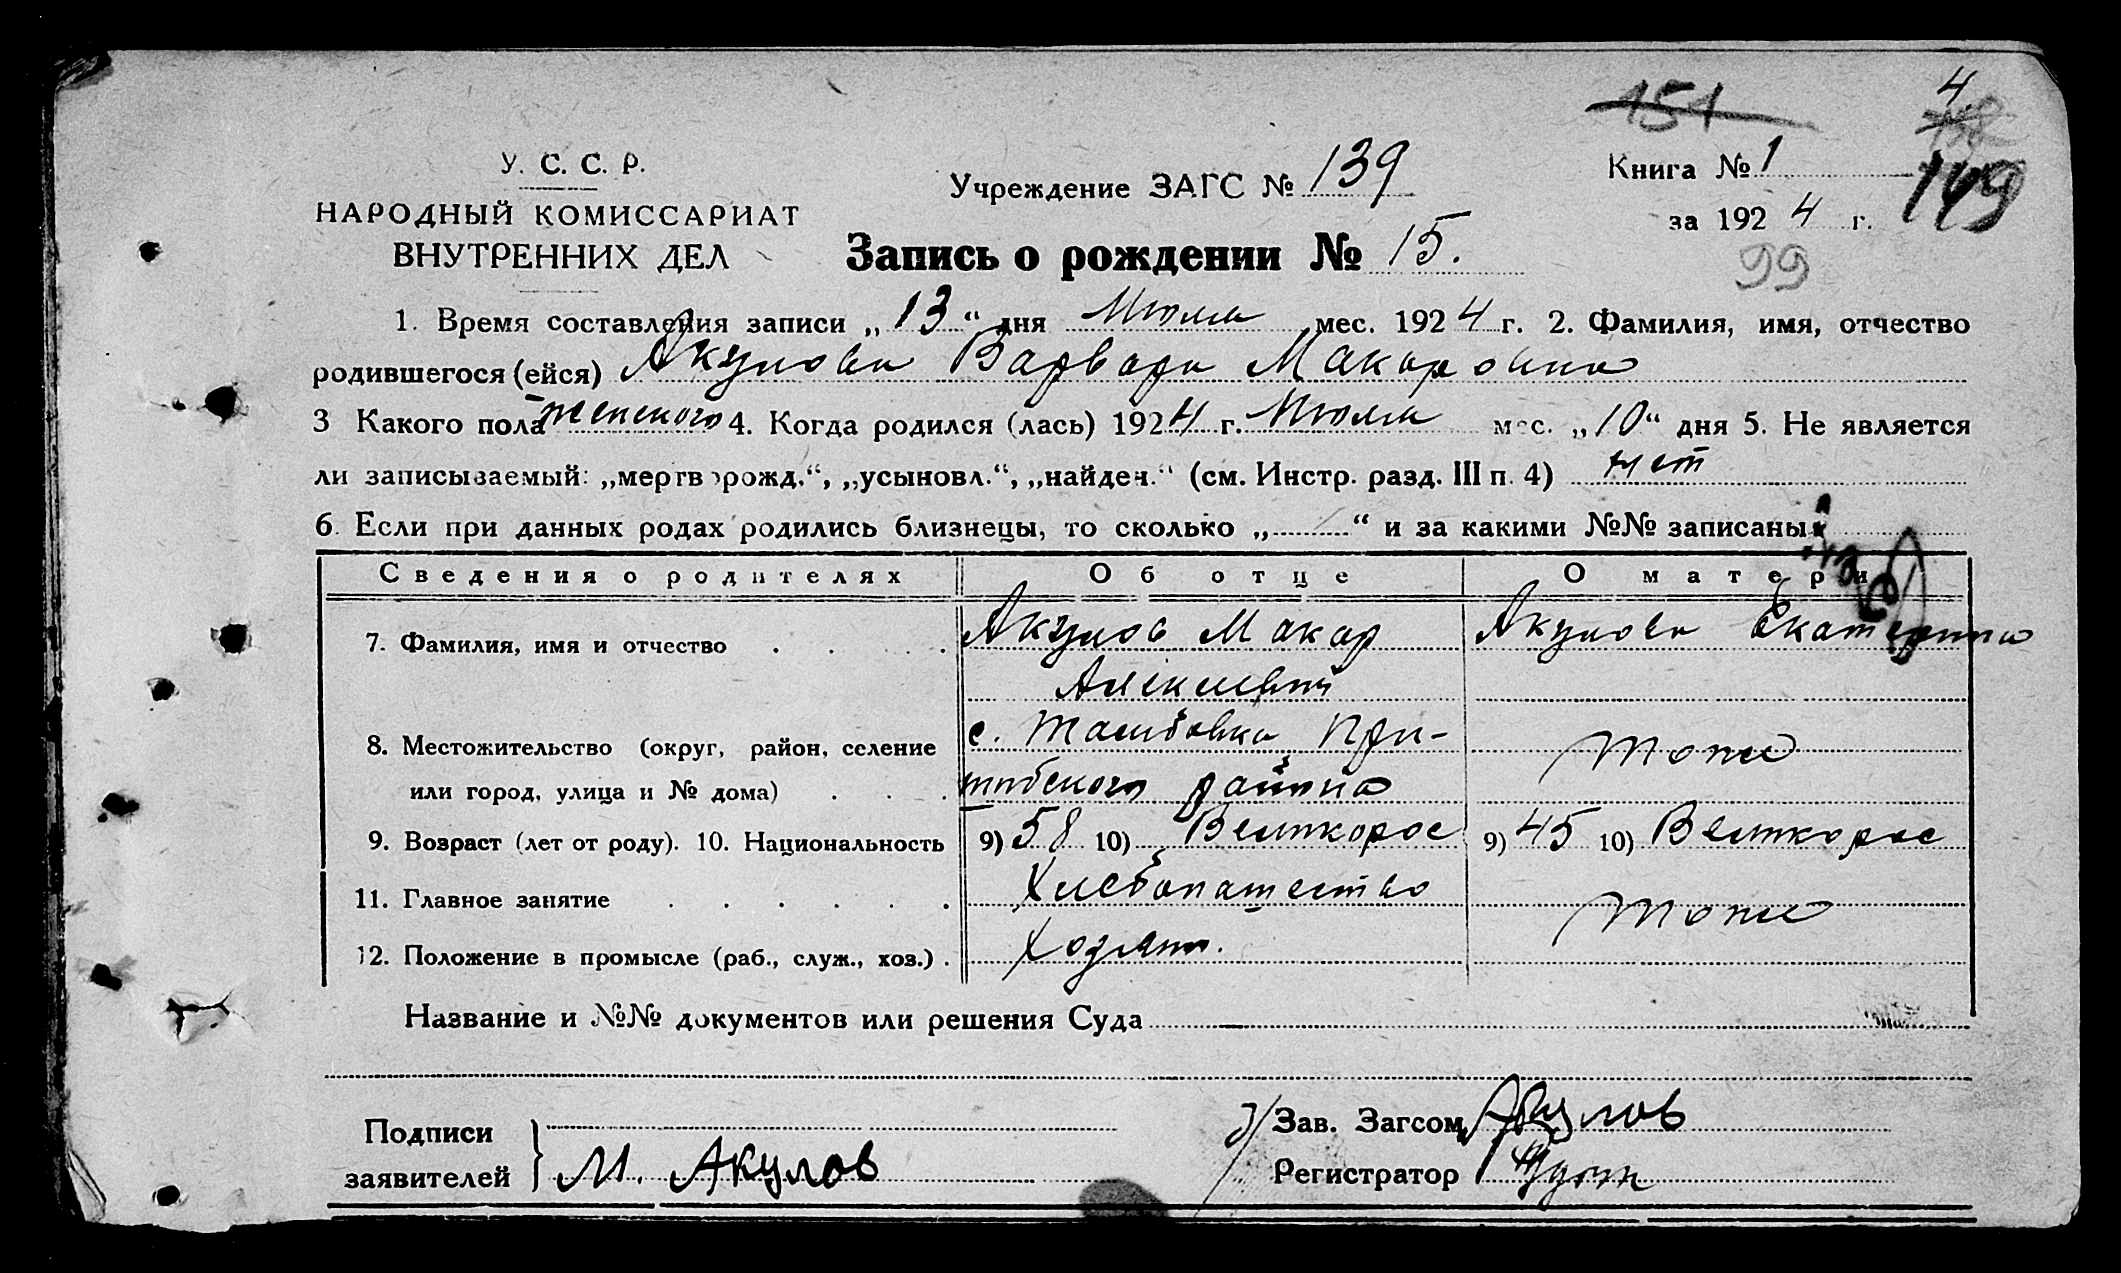 151
4.
У. С. С. Р.
Учреждение ЗАГС № 139
Книга № 1
149
НАРОДНЫЙ КОМИССАРИАТ
за 1924 г.
ВНУТРЕННИХ ДЕЛ
Запись о рождении № 15.
99
1. Время составления записи „13“ дня Июля мес. 1924 г. 2. Фамилия, имя, отчество
родившегося (ейся) Акулова Варвара Макаровна
3 Какого пола женского 4. Когда родился (лась) 1924 г. Июля мес. „10“ дня 5. Не является
ли записываемый: „мертворожд.“, „усыновл.“, „найден.“ (см. Инстр. разд. III п. 4) нет
6. Если при данных родах родились близнецы, то сколько „ “ и за какими №№ записаны
Сведения о родителях Об отце О матери
7. Фамилия, имя и отчество Акулов Макар Акулова Екатерина
Алексеевич
8. Местожительство (округ, район, селение с. Тамбовка При-
или город, улица и № дома) шибского района Тоже
9. Возраст (лет от роду). 10. Национальность 9) 58 10) Великорос 9) 45 10) Великорос
11. Главное занятие Хлебопашество Тоже
12. Положение в промысле (раб., служ., хоз.)
Название и №№ документов или решения Суда
Подписи
заявителей М. Акулов
Зав. Загсом
Регистратор